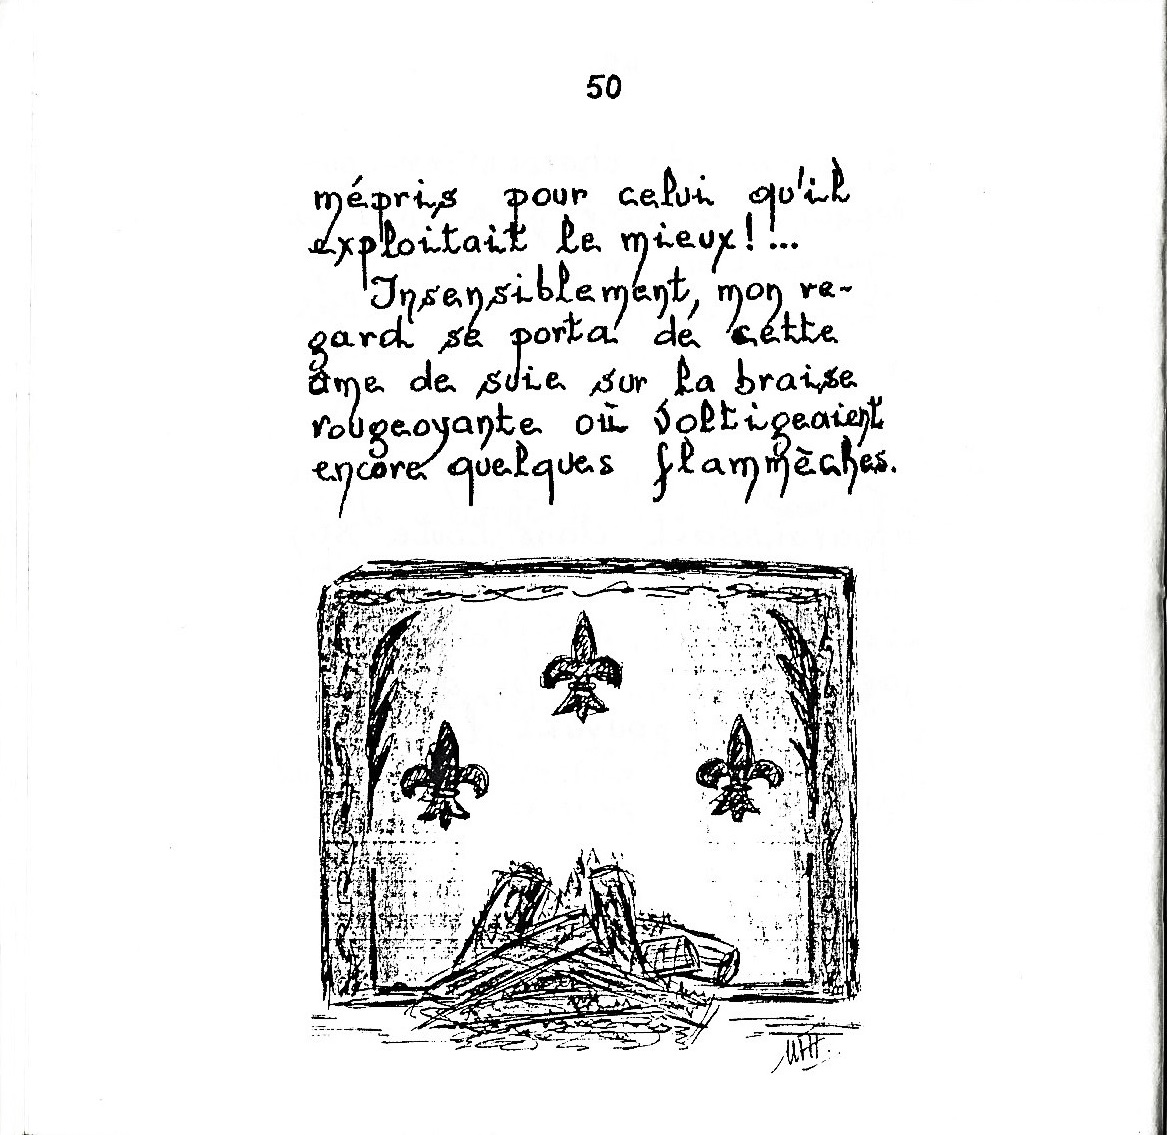 50
mépris pour celui qu'il
exploitait le mieux!...
Insensiblement, mon re-
gard se porta de cette
âme de suie sur la braise
rougeoyante où voltigeaient
encore quelques flammèches.